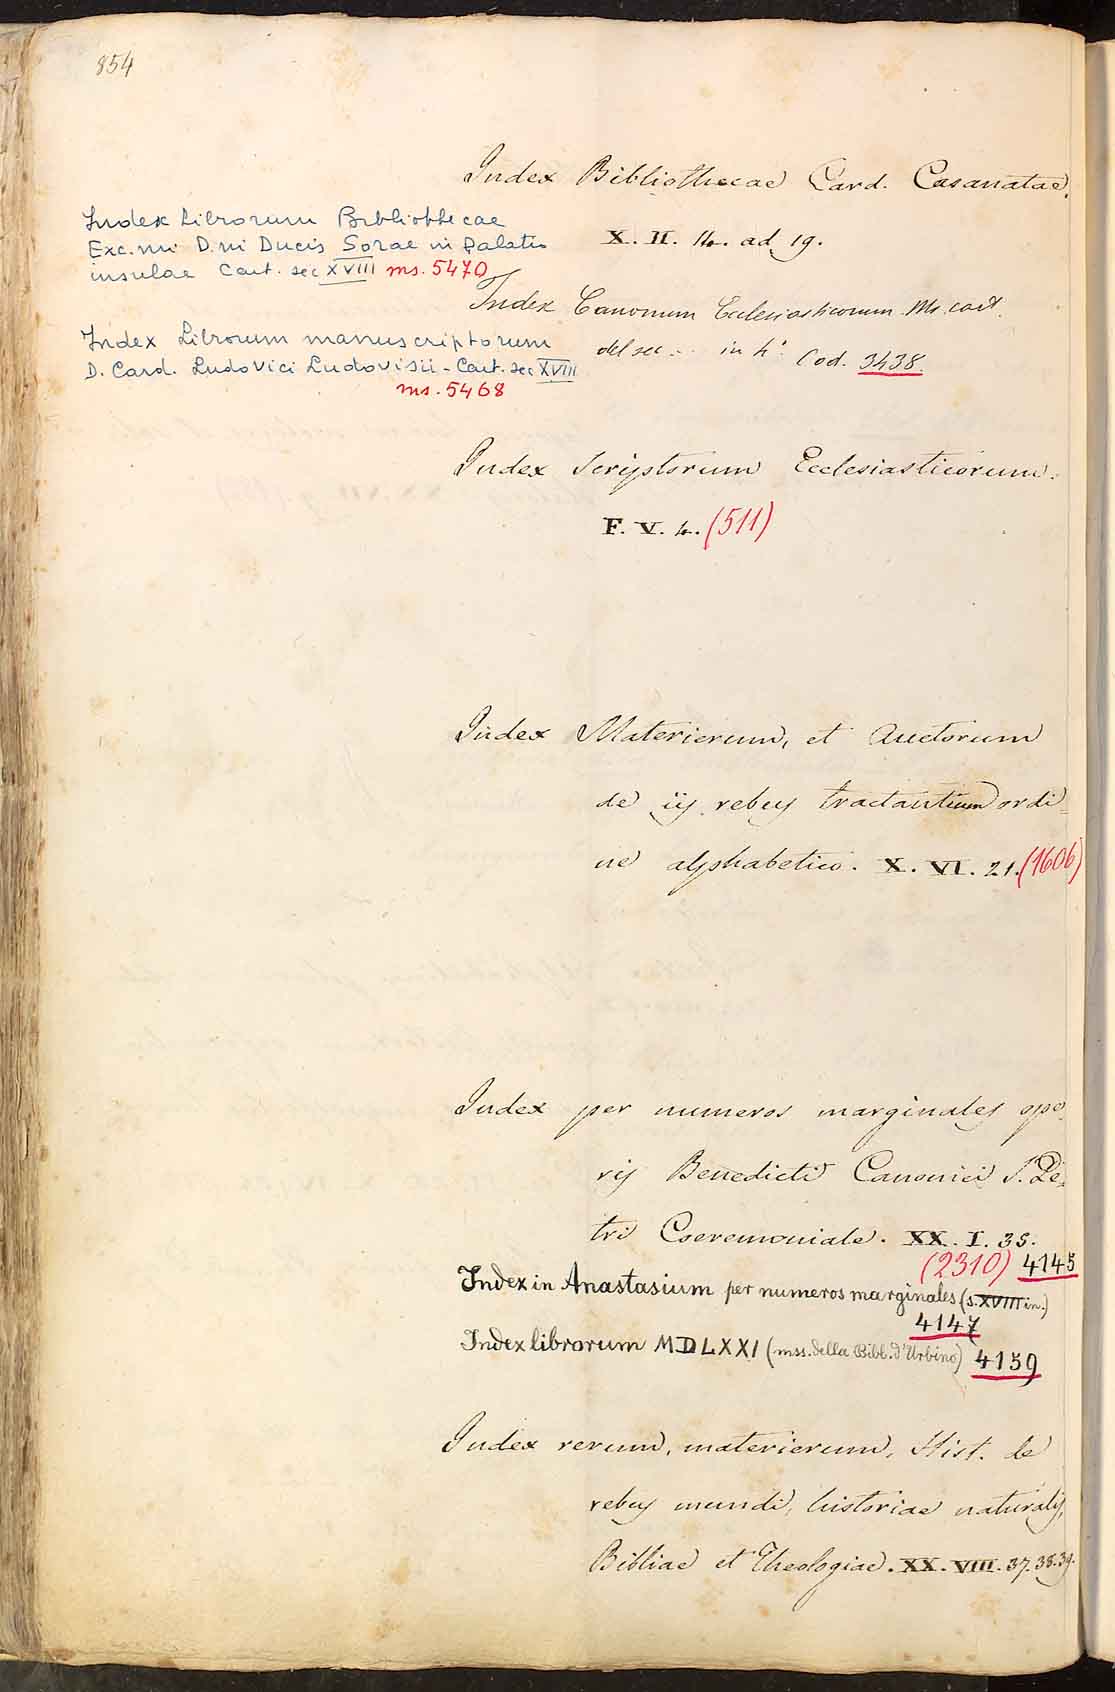 854
Index Bibliothecae Card. Casanatae.
X. II. 14. ad 19.
Index Librorum Bibliothecae
Exc.mi D.ni Ducis Sorae in Palatio
insulae Cart. sec XVIII ms. 5470
Index Canonum Ecclesiasticorum Ms. cart.
del sec... in 4° Cod. 3438.
Index Librorum manuscriptorum
D. Card. Ludovici Ludovisii - Cart. sec XVIII
ms. 5468
Index Scriptorum Ecclesiasticorum.
F. V. 4. (511)
Index Materierum, et Auctorum
de iis rebus tractantium ordi=
ne alphabetico. X. VI. 21. (1606)
Index per numeros marginales ope=
ris Benedicti Canonici S. Pe=
tri Coeremoniale. XX. I. 35.
(2310) 4145
Index in Anastasium per numeros marginales (s. XVIII in.)
4147
Index librorum MDLXXI (mss. della Bibl. d'Urbino) 4159
Index rerum, materierum, Hist. de
rebus mundi, historiae naturalis,
Bibliae et Theologiae. XX. VIII. 37. 38. 39.